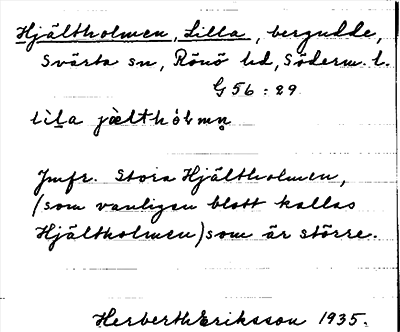 Hjältholmen, Lilla, bergudde,
Svärta sn, Rönö hd, Söderm. l.
G 56 : 29
lìla jæ̀lthòlmn̥
Jmfr. Stora Hjältholmen,
(som vanligen blott kallas
Hjältholmen) som är större.
Herberth Eriksson 1935.